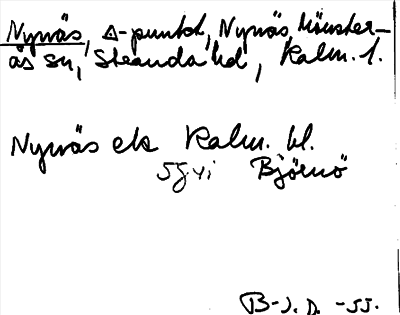 Nynäs, △-punkt, Nynäs, Mönster-
ås sn, Stranda hd, Kalm. l.
Nynäs ek Kalm. bl.
5G Björnö
B-J. D. -55.